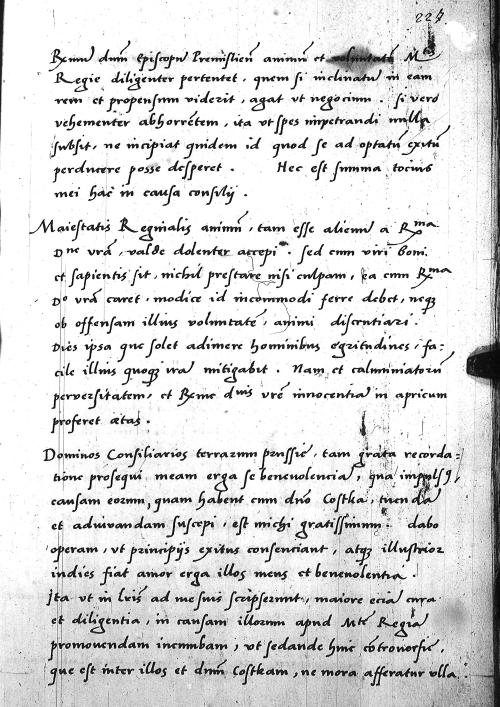 227
Rxmu dnm Episcopu Premislien animu et voluntate Mtis
Regie diligenter pertentet, quem si inclinatu in eam
rem et propensum viderit, agat ut negocium. si vero
vehementer abhorrẽtem, ita ut spes impetrandi nulla
subsit, ne incipiat quidem id quod se ad optatũ exitũ
perducere posse desperet. Hec est summa tocius
mei hac in causa consilij.
Maiestatis Reginalis animũ, tam esse alienũ a Rma
Dne vra, valde dolenter accepi. Sed cum viri boni
et sapientis sit, nichil prestare nisi culpam, ea cum Rma
Do vra caret, modice id incommodi ferre debet, neqz
ob offensam illius voluntatẽ, animi discrutiari.
Dies ipsa que solet adimere hominibus egritudines, fa-
cile illius quoqz ira mitigabit. Nam et calumniatorũ
perversitatem, et Rxme dnis vre innocentiã in apricum
proferet ætas.
Dominos Consiliarios terrarum prussie, tam grata recorda=
tione prosequi meam erga se benevolenciã, qua impulsg,
causam eorum, quam habent cum dno Costka, tuenda
et adiuvandam suscepi, est michi gratissimum. dabo
operam, ut principijs exitus consenciant, atqz illustrior
indies fiat amor erga illos meus et benevolentia.
Ita ut in lris ad me suis scripserunt, maiore ecia cura
et diligentia, in causam illorum apud Mte Regia
promovendam incumbam, ut sedande huic cõtroversie,
que est inter illos et dnm Costkam, ne mora afferatur ulla.